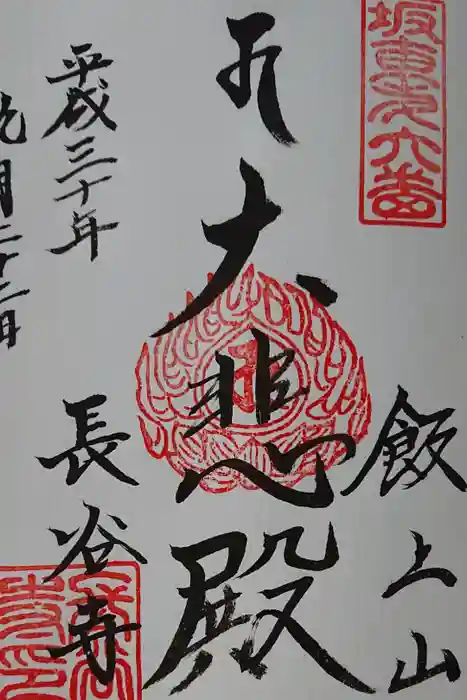 坂東第六番
飯上山
大悲殿
平成三十年
九月二十二日
長谷寺